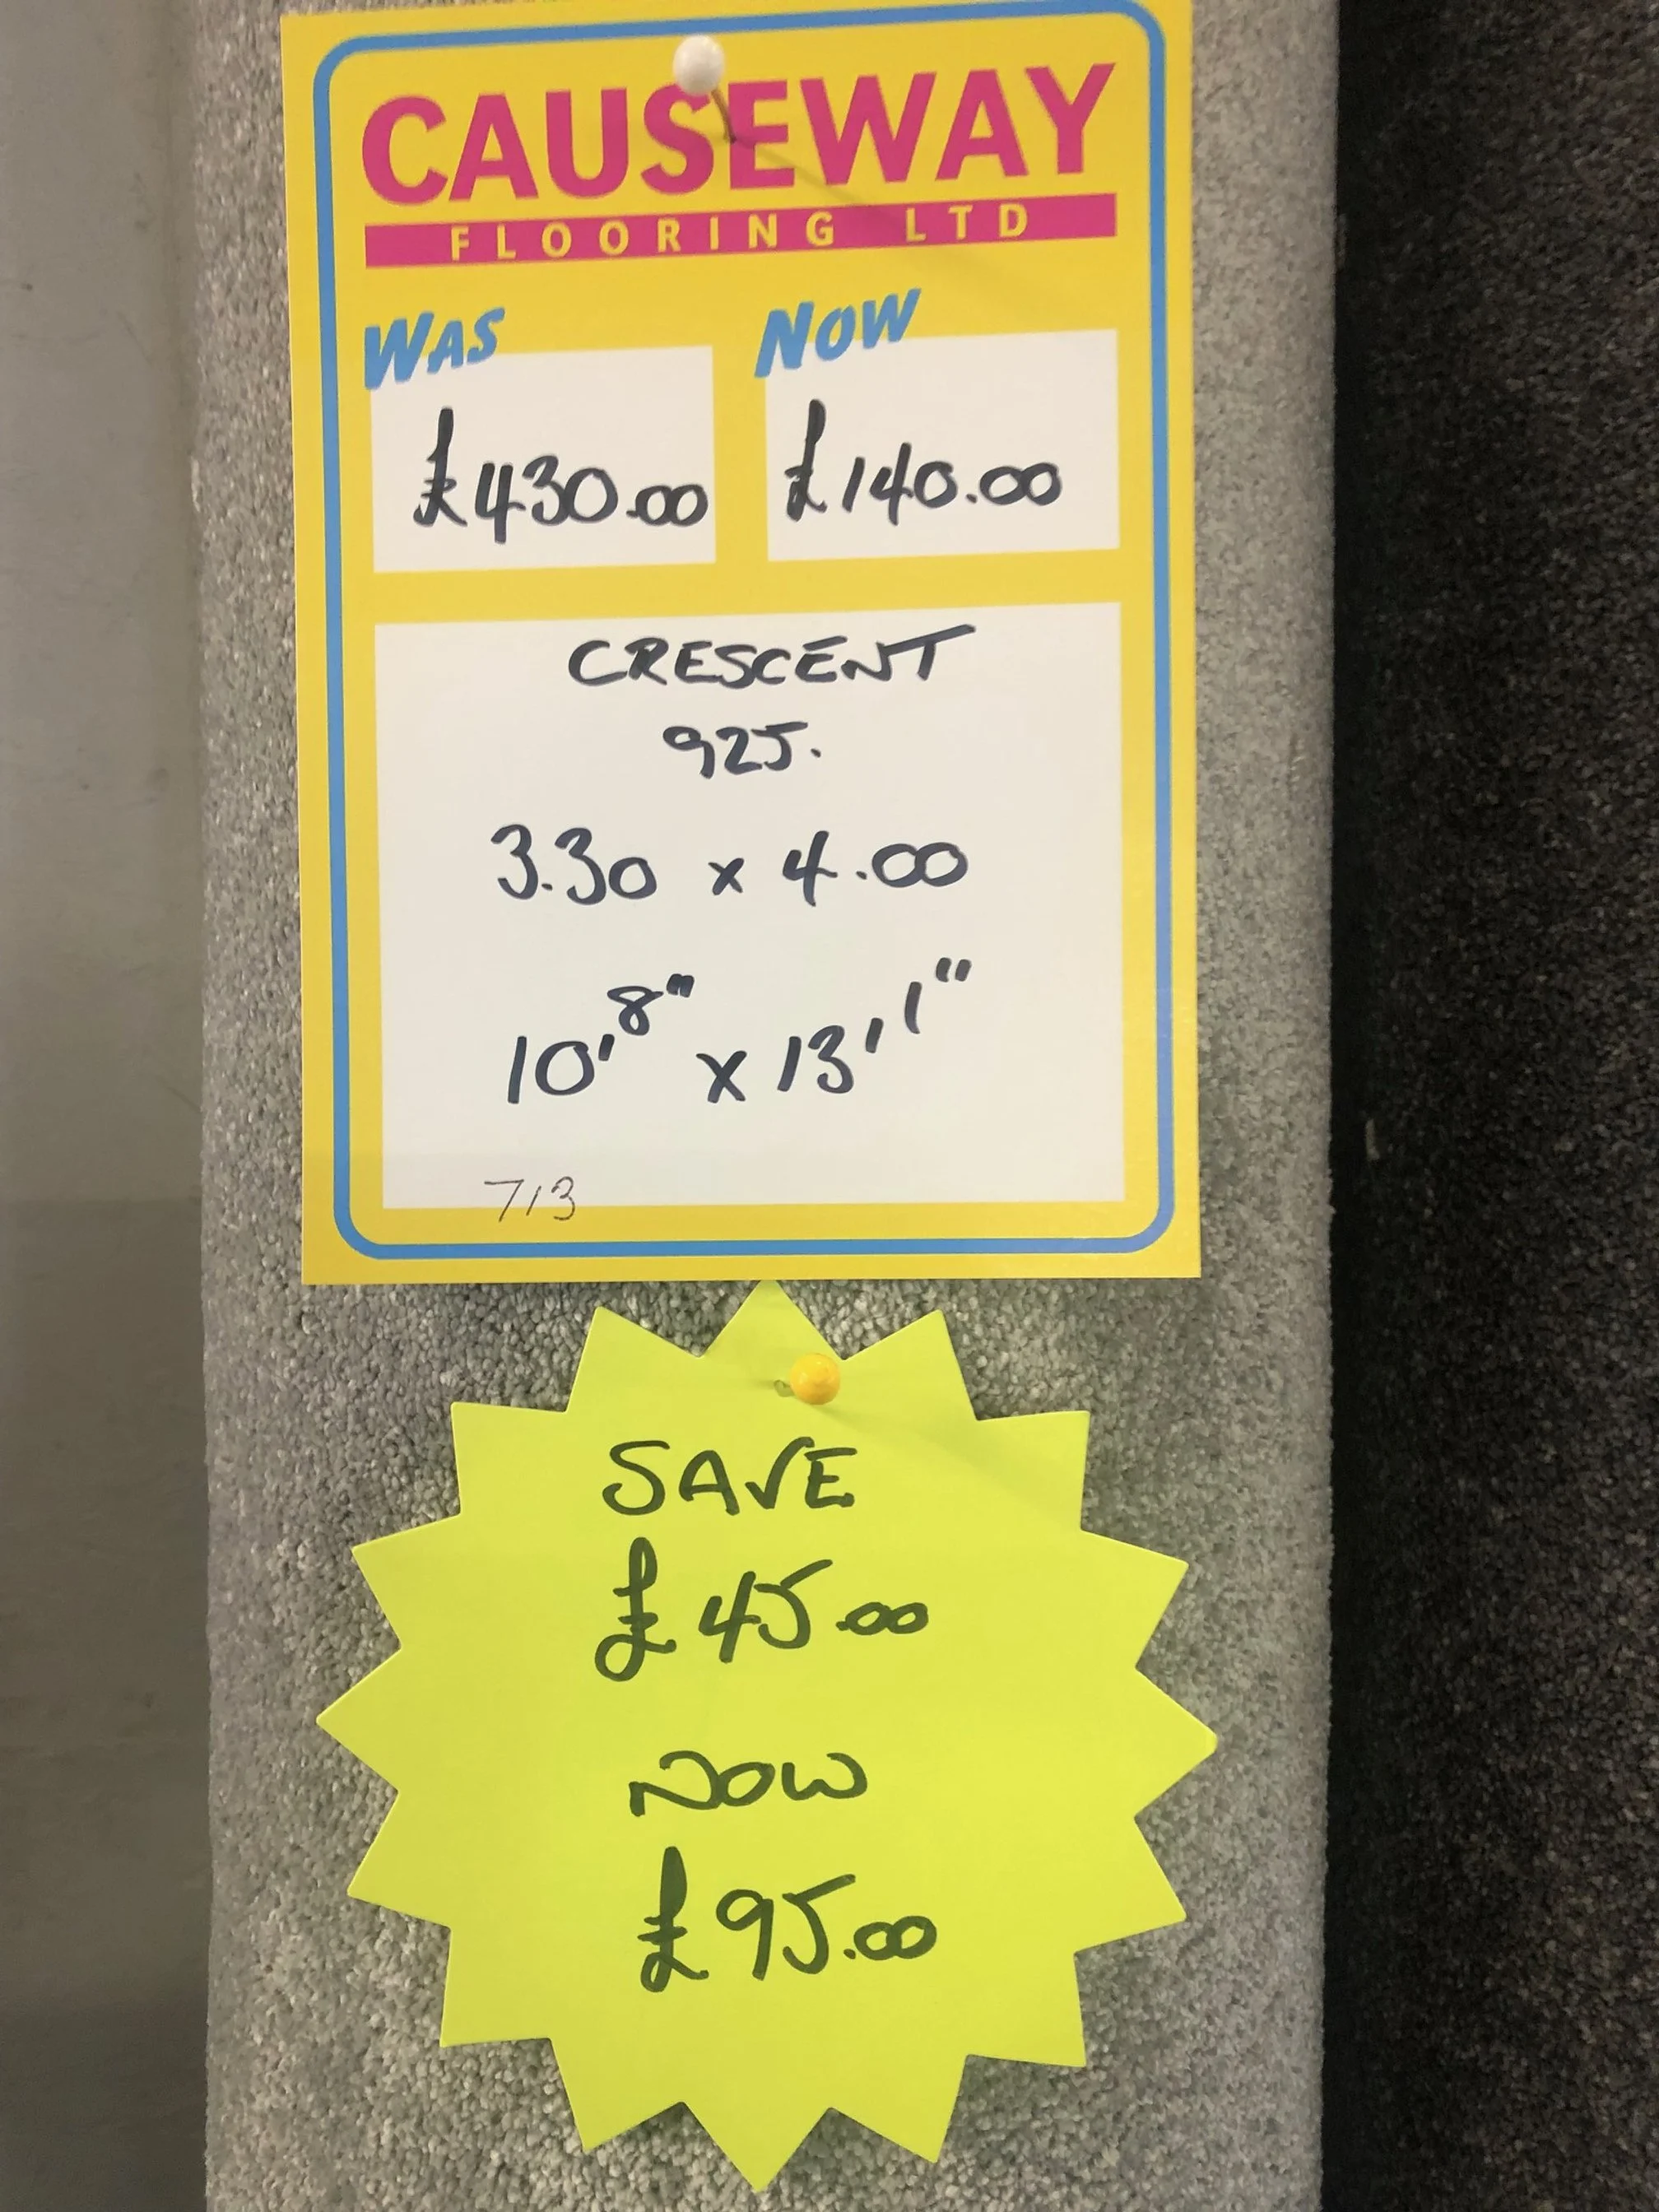 CAUSEWAY
FLOORING LTD
WAS
NOW
£430.00
£140.00
CRESCENT
925.
3.30 x 4.00
10'8" x 13'1"
713
SAVE
£45.00
NOW
£95.00